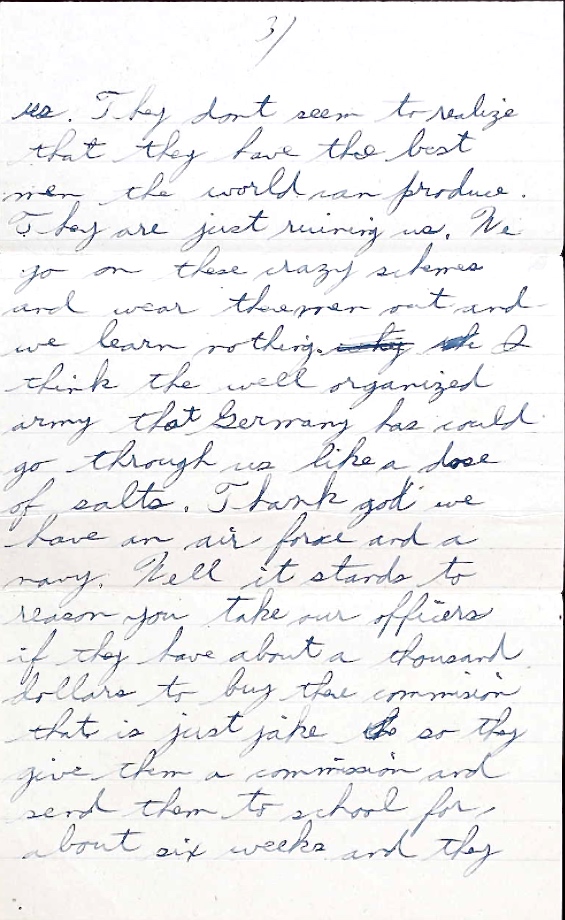 3/
us. They dont seem to realize
that they have the best
men the world can produce.
They are just ruining us. We
go on these crazy schemes
and wear the men out and
we learn nothing. why I
think the well organized
army that Germany has could
go through us like a dose
of salts. Thank god we
have an air force and a
navy. Well it stands to
reason you take our officers
if they have about a thousand
dollars to buy there commision
that is just jake so they
give them a commission and
send them to school for
about six weeks and they